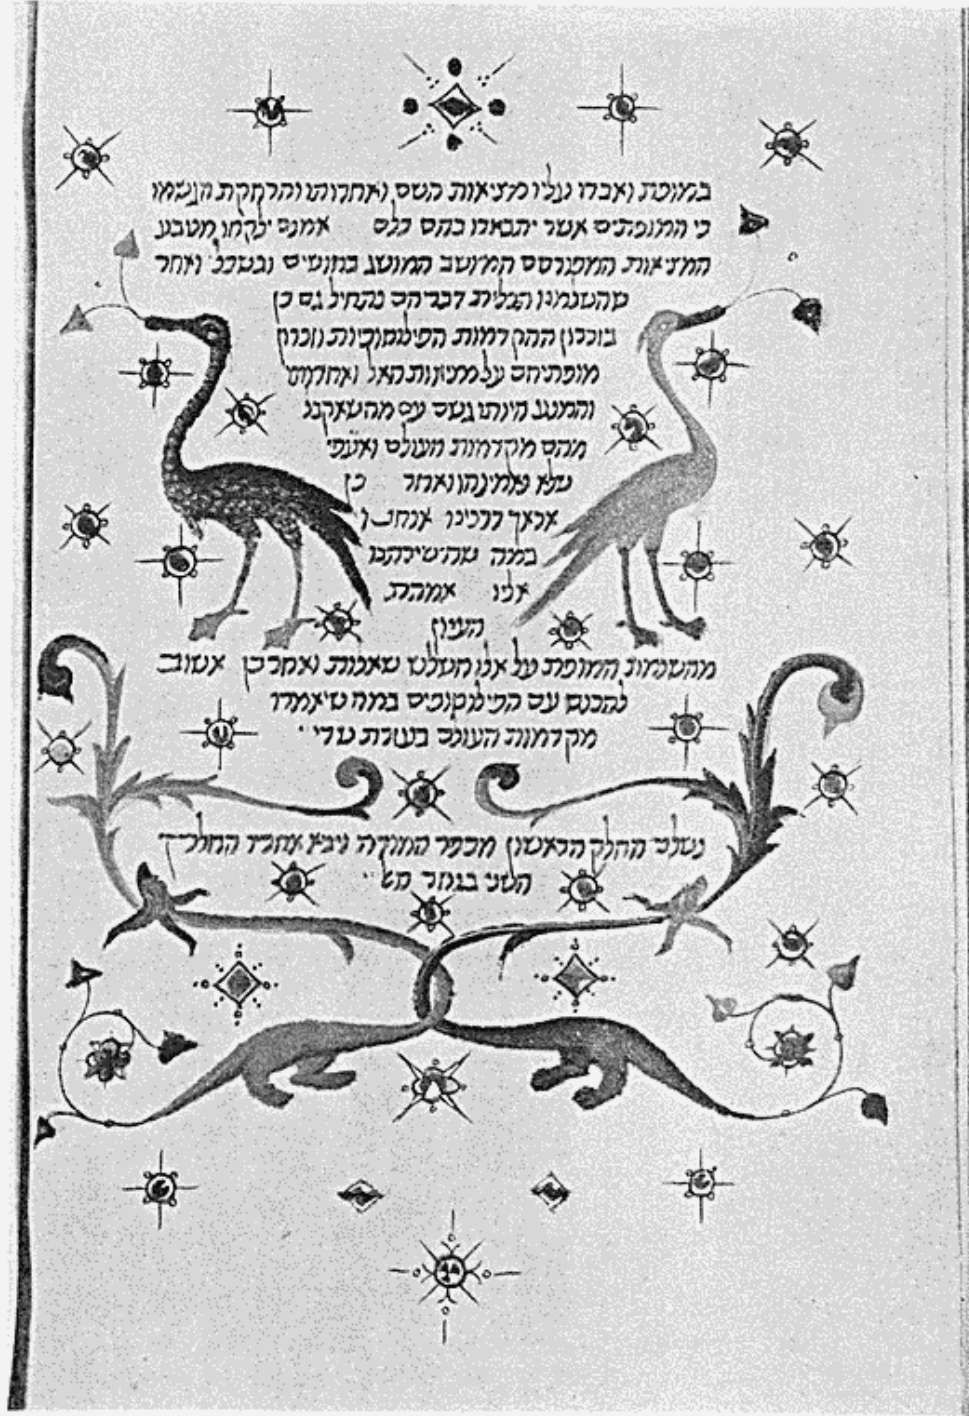 במופת ואבדו עליו מציאות השם ואחדותו והרחקת הגשמו
כי המופתים אשר יתבארו בהם כלם אמנם ילקחו מטבע
המציאות המפורסם המיושב המושג בחושים ובשכל ואחר
שהשלמנו תכלית דבריהם נתחיל גם כן
בזכרון ההקדמות הפילוסופיות וזכרון
מופתיהם על מציאות האל ואחדותו
והמנע היותו גשם עם מה שאקבל
מהם מקדמות העולם ואעפי
שלא נאמינהו ואחר כן
אראך דרכינו אנחנו
במה שהישירהנו
אליו אמתת
העיון
מהשלמת המופת על אלו השלש שאלות ואחר כן אשוב
להכנס עם הפילוסופים במה שיאמרו
מקדמות העולם בעזרת שדי
נשלם החלק הראשון מספר המורה ויבא אחריו החלק
השני